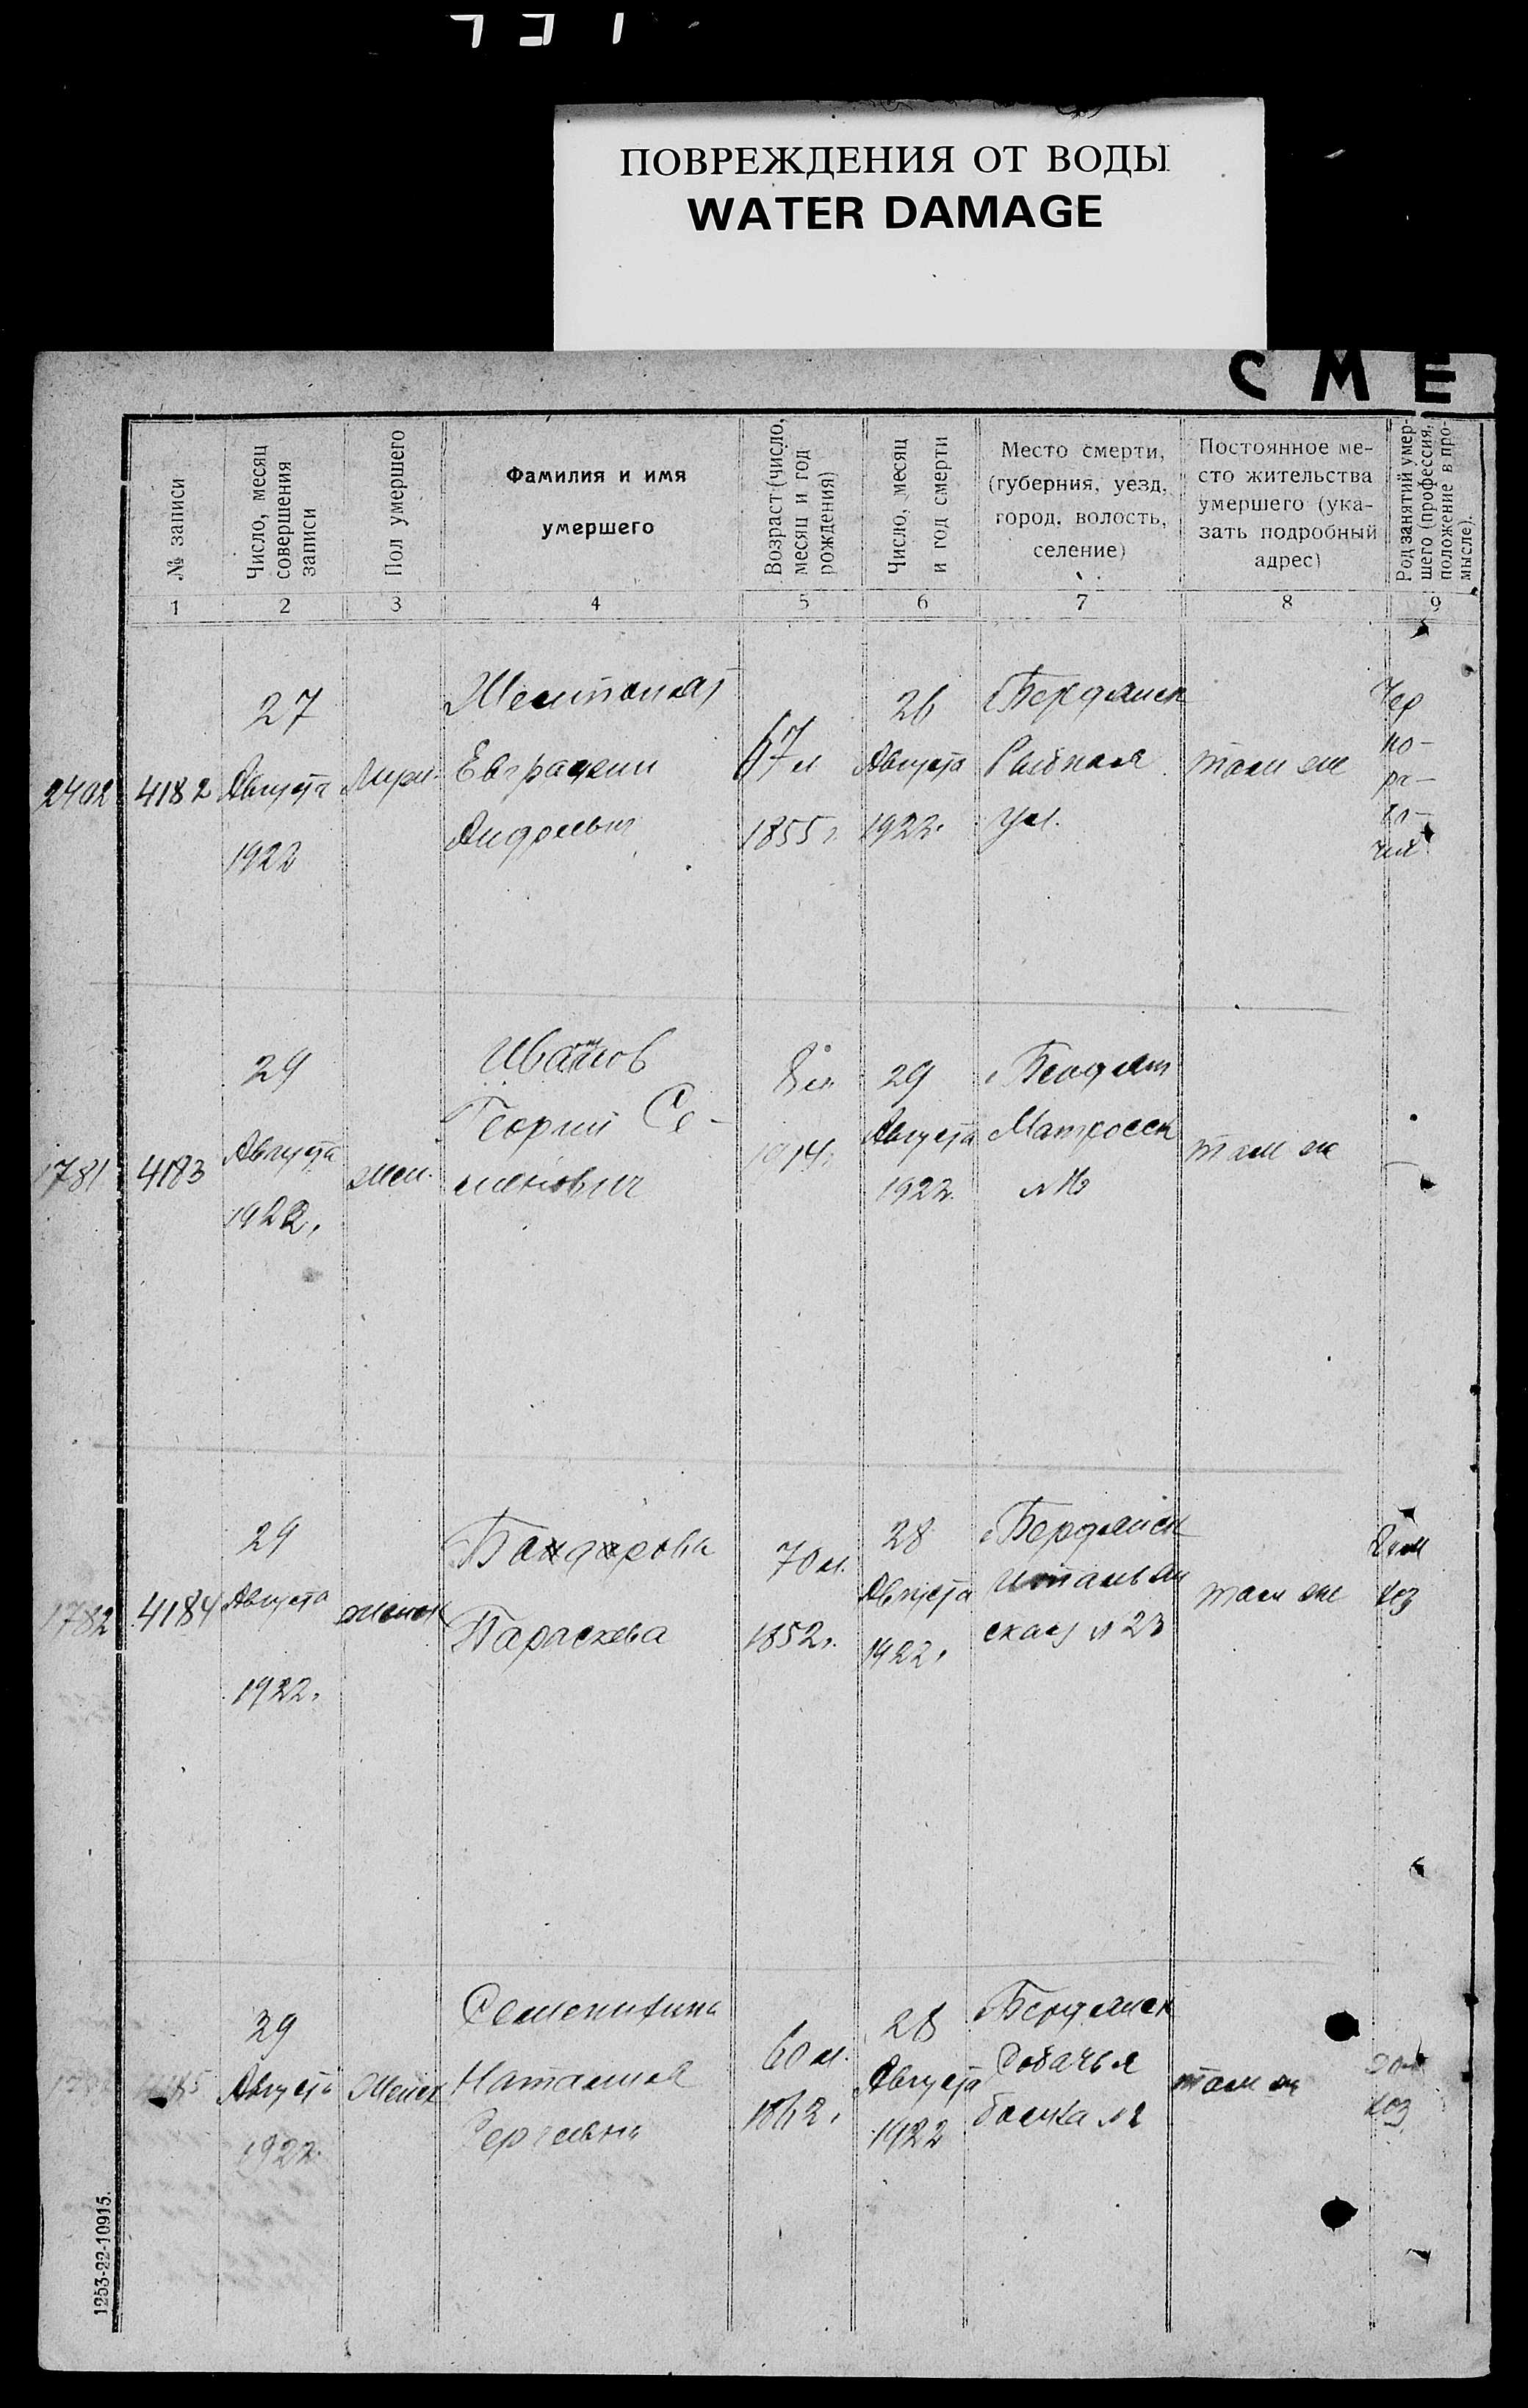 ПОВРЕЖДЕНИЯ ОТ ВОДЫ
WATER DAMAGE
СМЕ
№ записи
Число, месяц совершения записи
Пол умершего
Фамилия и имя
умершего
Возраст (число, месяц и год рождения)
Число, месяц и год смерти
Место смерти,
(губерния, уезд,
город, волость,
селение)
Постоянное ме-
сто жительства
умершего (ука-
зать подробный
адрес)
Род занятий умер-
шего (профессия,
положение в про-
мысле).
1 2 3 4 5 6 7 8 9
2402 4182
27
Августа
1922
Евграфий
Андреевич
67 л
1855 г.
26
Августа
1922.
Бердянск
Рыбная
ул.
там же
Чер
но-
ра-
бо-
чий
1781 4183
29
Августа
1922.
Иванов
Георгий Се-
менович
8 л.
1914.
29
Августа
1922.
Бердян
Матросск
там же
1782 4184
29
Августа
1922.
женск
Параскева
70 л.
1852 г.
28
Августа
1922.
Бердянск
Итальян
ская № 23
там же
Дом
хоз
29
Августа
1922.
Женск
Наталия
Сергеевна
60 л.
1862.
28
Августа
1922
Бердянск
Собачья
балка
там же
дом
хоз
1253-22-10915.